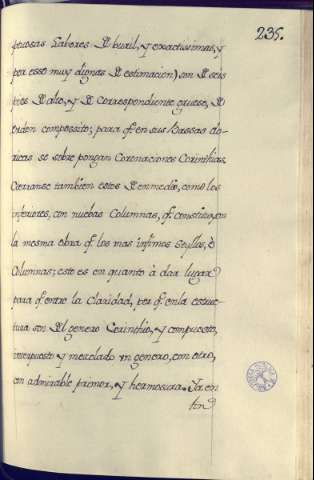 235.
preciosas Labores de buril, y exactissimas, y
por esso muy dignas de estimacion) son de seis
pies de alto, y de correspondiente grueso, de
orden compossito; para q̃ en sus Bassas do-
ricas se sobre pongan Coronaciones Corinthias.
Cierranse tambien estos de en medio, como los
inferiores, con nuebas Columnas, q̃ constituyen
la mesma obra q̃ los mas infimos Seyllos, ò
Columnas; esto es en quanto à dar lugar
para q̃ entre la Claridad, per q̃ en la estruc-
tura son del genero Corinthio, y compuesto,
interpuesto y mezclado un genero, con otro,
con admirable primor, y hermosura. Ya en
fin